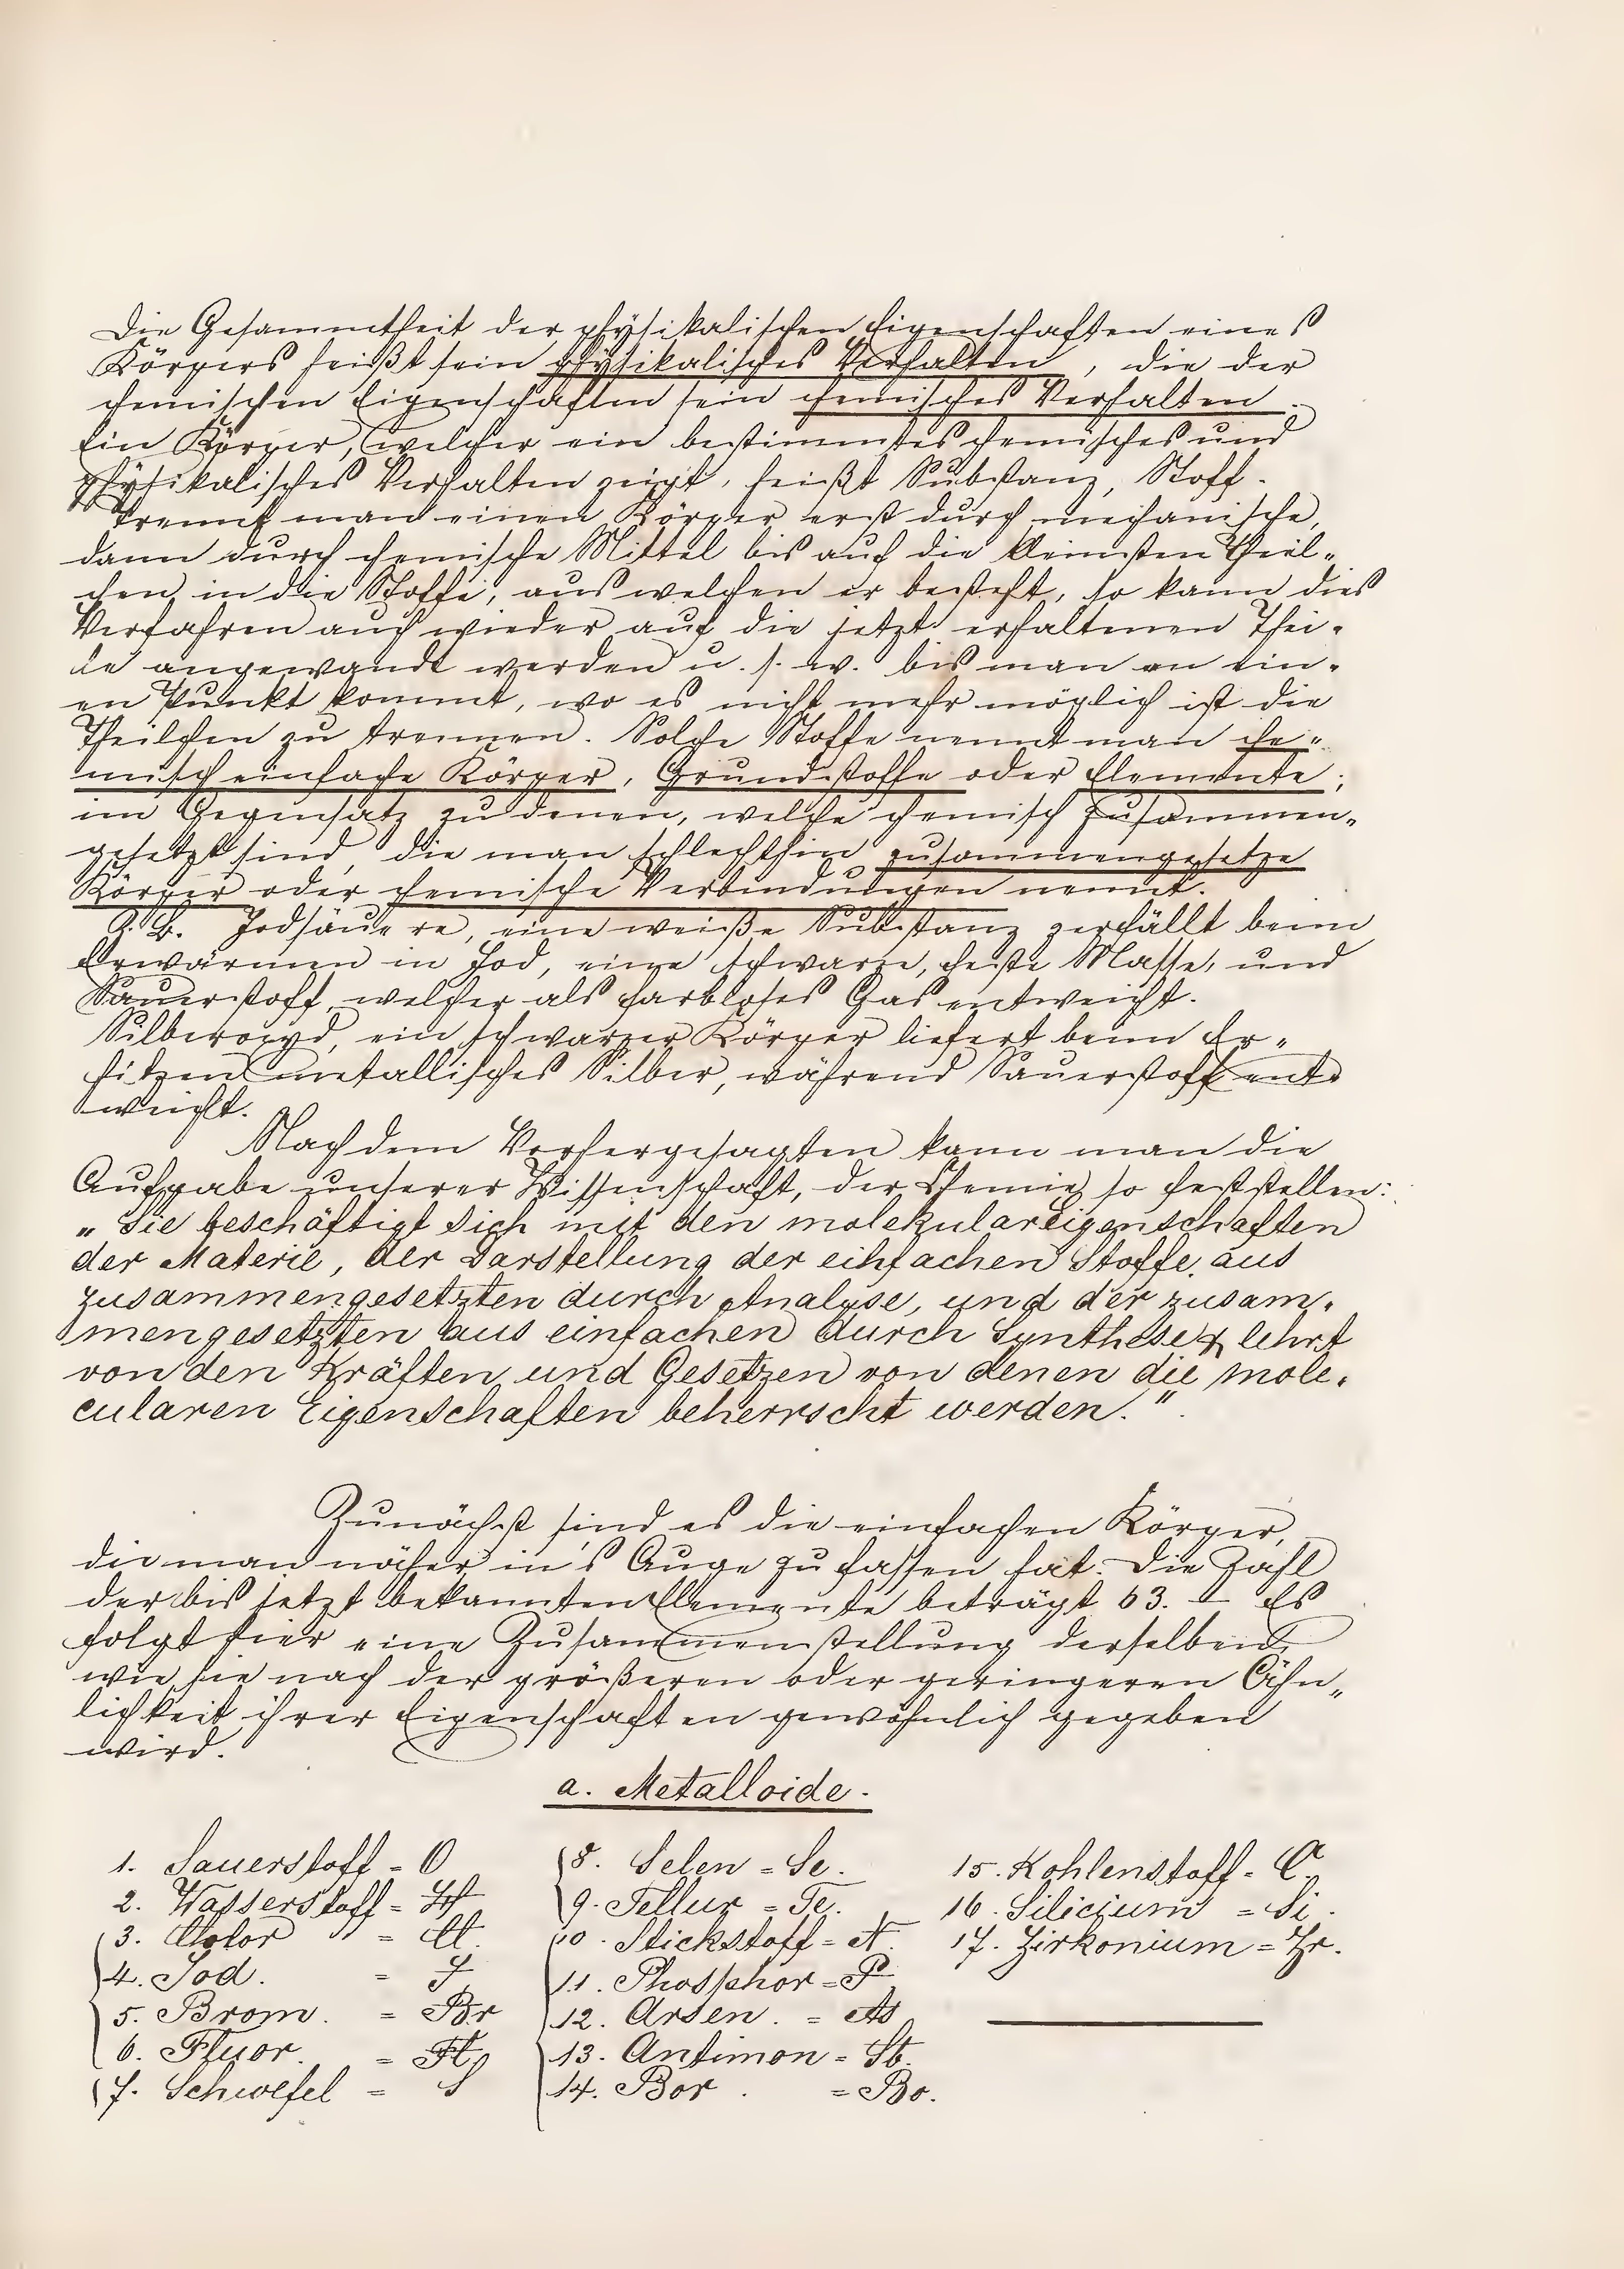 Die Gesammtheit der physikalischen Eigenschaften eines
Körpers heißt sein physikalisches Verhalten, die der
chemischen Eigenschaften sein chemisches Verhalten.
Ein Körper, welcher ein bestimmtes chemisches und
physikalisches Verhalten zeigt, heißt Substanz, Stoff.
Trennt man einen Körper erst durch mechanische,
dann durch chemische Mittel bis auf die kleinsten Theil-
chen in die Stoffe, aus welchen er besteht, so kann dies
Verfahren auch wieder auf die jetzt erhaltenen Thei-
le angewandt werden u. s. w. bis man an ein-
en Punkt kommt, wo es nicht mehr möglich ist die
Theilchen zu trennen. Solche Stoffe nennt man che-
misch einfache Körper, Grundstoffe oder Elemente;
im Gegensatz zu denen, welche chemisch zusammen-
gesetzt sind, die man schlechthin zusammengesetze
Körper oder chemische Verbindungen nennt.
Z. B. Jodsäuere, eine weiße Substanz zerfällt beim
Erwärmen in Jod, eine schwarze, feste Masse, und
Sauerstoff, welcher als farbloses Gas entweicht.
Silberoxyd, ein schwarzer Körper liefert beim Er-
hitzen metallisches Silber, während Sauerstoff ent-
weicht.
Nach dem Vorhergesagten kann man die
Aufgabe unserer Wissenschaft, der Chemie so feststellen:
„Sie beschäftigt sich mit den molekulareigenschaften
der Materie, der Darstellung der einfachen Stoffe aus
zusammengesetzten durch Analyse, und der zusam-
mengesetzten aus einfachen durch Synthese & lehrt
von den Kräften und Gesetzen von denen die mole-
cularen Eigenschaften beherrscht werden."
Zunächst sind es die einfachen Körper,
die man näher in's Auge zu fassen hat. Die Zahl
der bis jetzt bekannten Elemente beträgt 63. – Es
folgt hier eine Zusammenstellung derselben
wie sie nach der größeren oder geringeren Ähn-
lichkeit ihrer Eigenschaften gewöhnlich gegeben
wird.
a. Metalloide.
1. Sauerstoff = O
2. Wasserstoff = H
3. Chlor = Cl.
4. Jod. = J.
5. Brom. = Br
6. Fluor. = Fl.
7. Schwefel = S
8. Selen = Se.
9. Tellur = Te.
10. Stickstoff = N.
11. Phosphor = P
12. Arsen. = As
13. Antimon = Sb.
14. Bor. = Bo.
15. Kohlenstoff = C.
16. Silicium = Si.
17. Zirkonium = Zr.